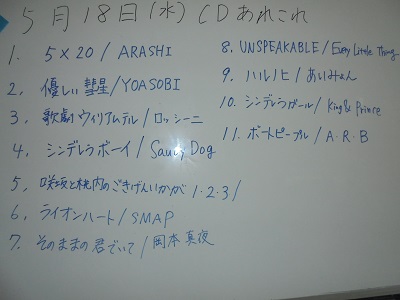 5月18日(水) CDあれこれ
1. 5×20 / ARASHI
2. 優しい彗星/YOASOBI
3. 歌劇ウィリアムテル/ロッシーニ
4. シンデレラボーイ/Saucy Dog
5. 咲坂と桃内のごきげんいかが 1・2・3/
6. ライオンハート/SMAP
7. そのままの君でいて/岡本真夜
8. UNSPEAKABLE/Every Little Thing
9. ハルノヒ/あいみょん
10. シンデレラガール/King & Prince
11. ボートピープル/A・R・B